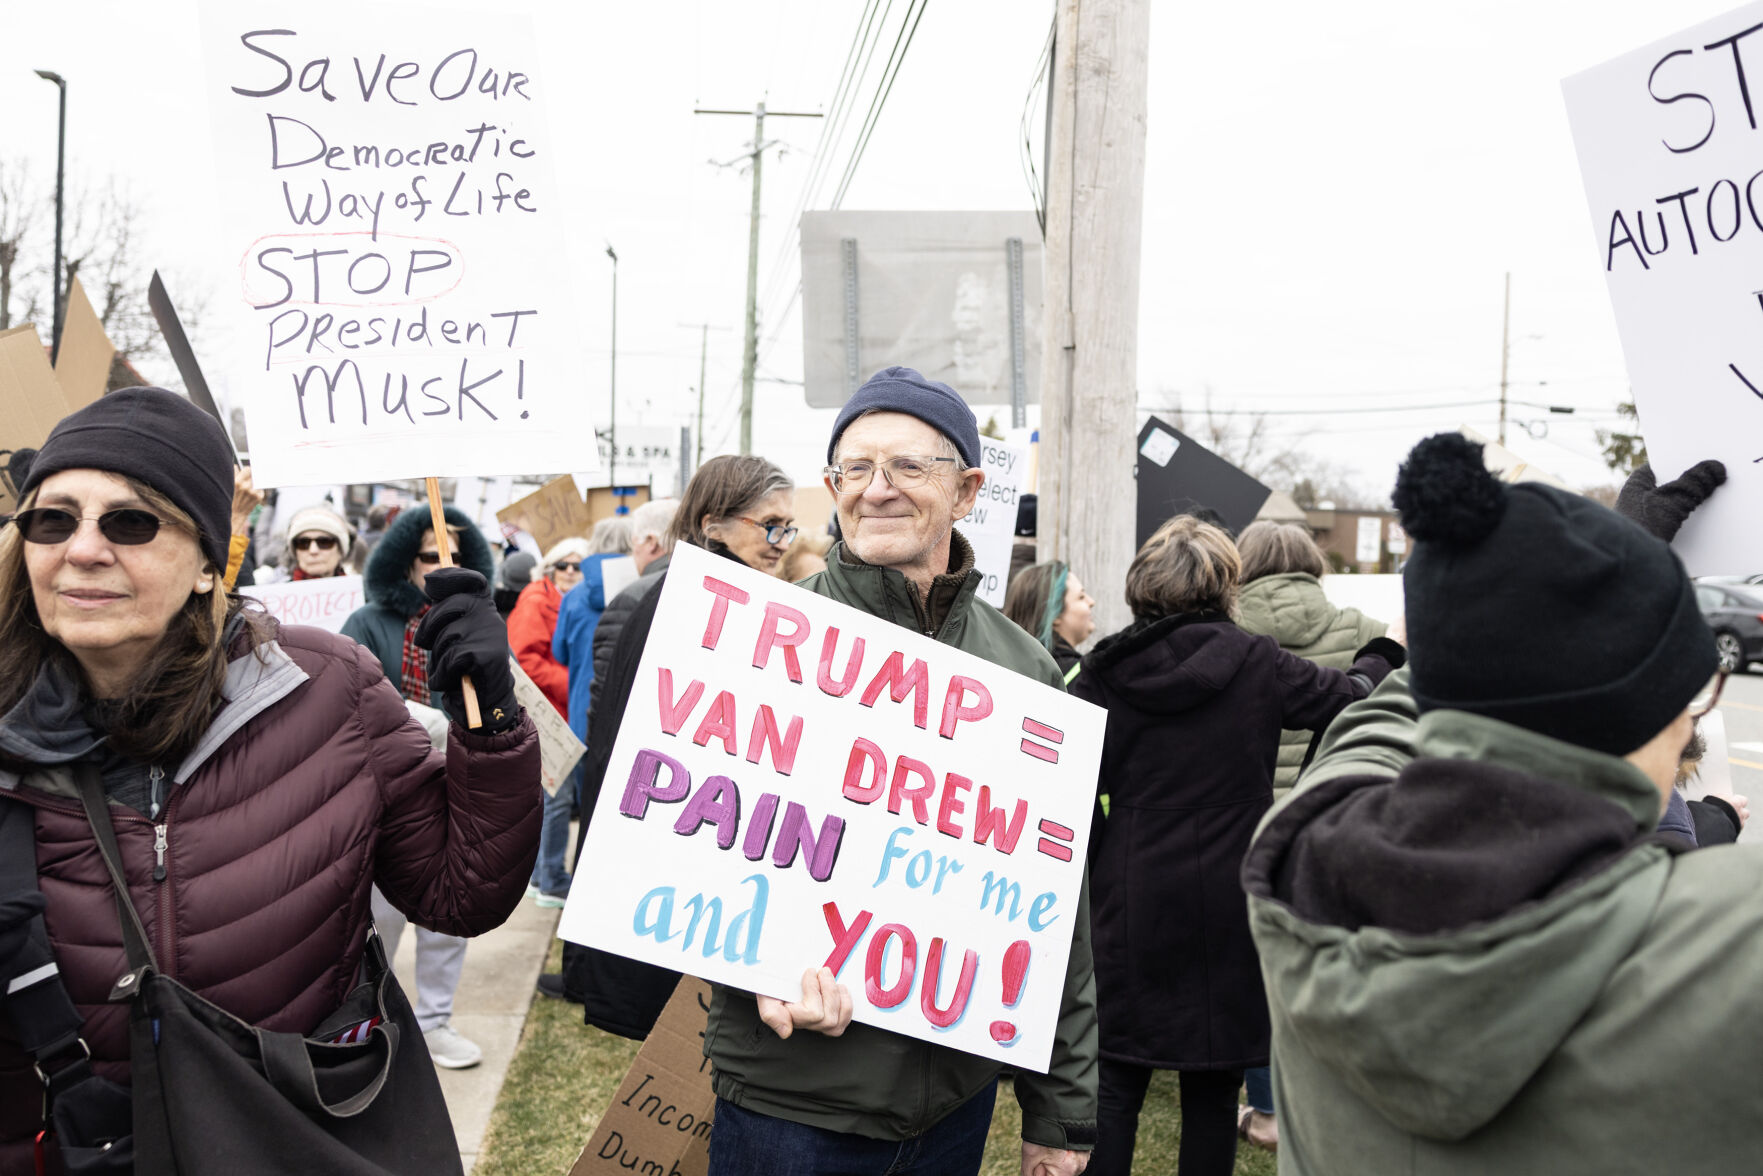 Save Our
Democratic
Way of Life
STOP
President
Musk!
TRUMP =
VAN DREW =
PAIN for me
and YOU!
ST
AUTOC
& SPA
rsey
elect
ew
mp
PROTECT
SAVE
Incom
Dumb